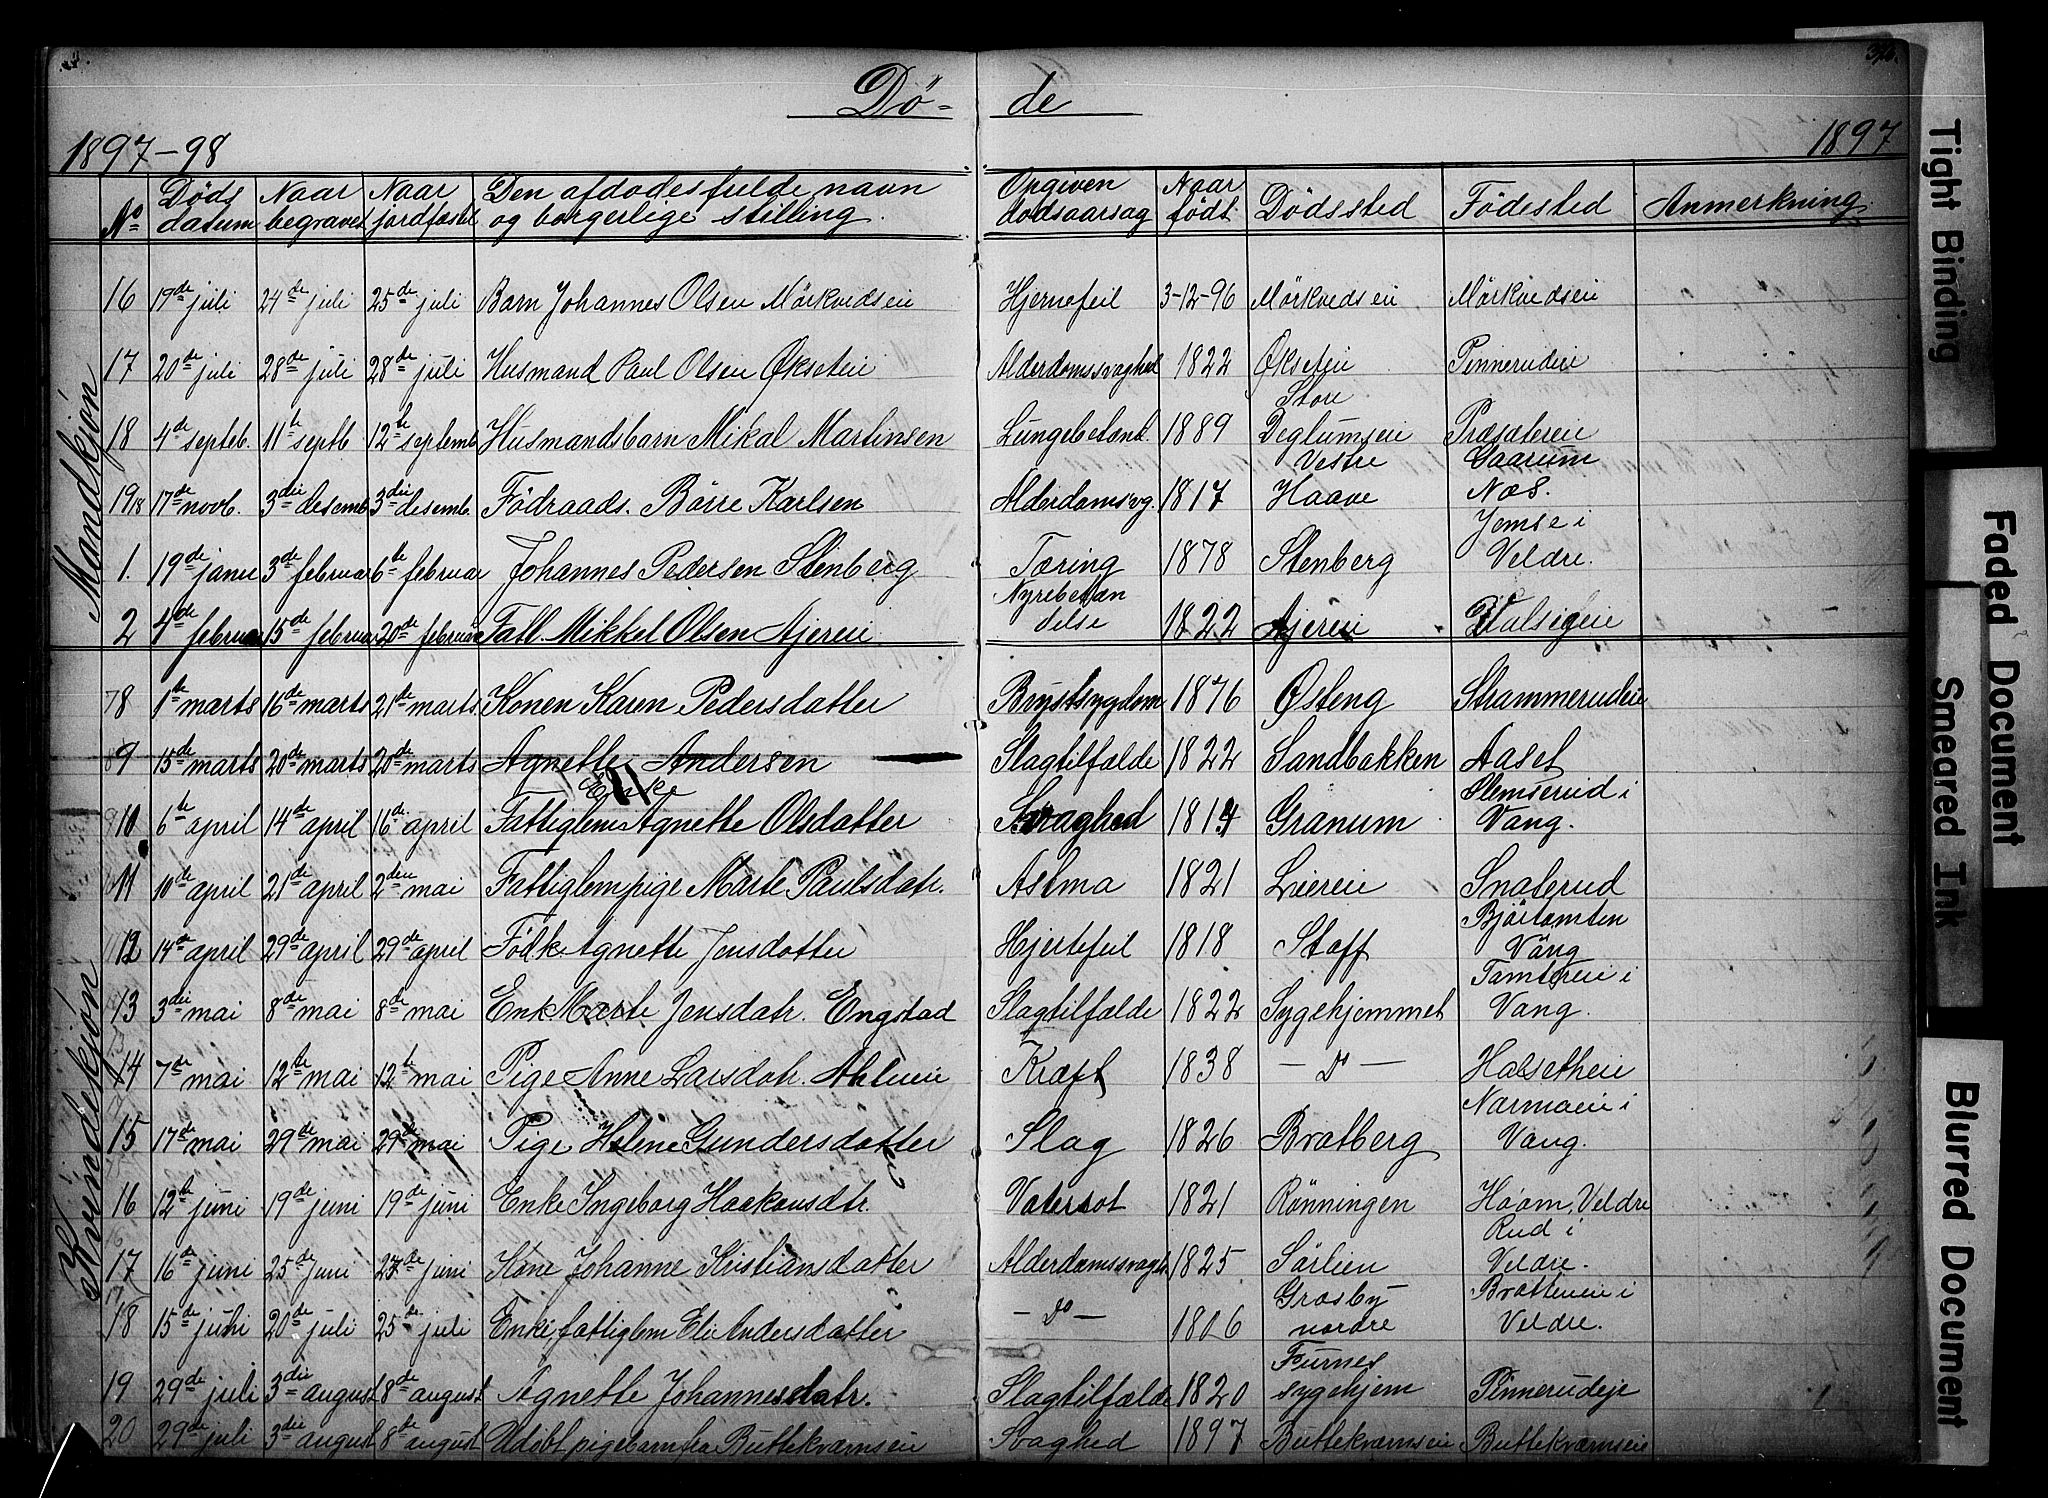 Dø- de
1897-98
1897
No Døds datum Naar begravet Naar jordfæstet Den afdødes fulde navn og borgerlige stilling. Opgiven dødsaarsag Naar født. Dødssted Fødested Anmerkning.
Mandkjøn
16 19de juli 24de juli 25de juli Barn Johannes Olsen Mörkvedseie Hjernefeil 3-12-96 Mörkvedseie Mörkvedseie
17 20de juli 28de juli 28de juli Husmand Paul Olsen Økseteie Alderdomssvaghed 1822 Økseteie Pinnerudeie
18 4de septeb. 11te septb 12te septemb. Husmandsbarn Mikal Martinsen Lungebetænd. 1889 Store Deglumseie Præsætereie
19 17de novb. 3die desemb. 3die desemb. Födraads. Börre Karlsen Alderdomsvg. 1817 Vestre Haave Gaarum Næs.
1. 19de janu 3de februar 6te februar Johannes Pedersen Stenberg Tæring 1878 Stenberg Jemse i Veldre.
2 4de februar 15de februar 20de februar Fatl. Mikkel Olsen Ajereie. Nyrebetændelse 1822 Ajereie
Kvindekjön
8 1te marts 16de marts 21de marts. Konen Karen Pedersdatter Brystsygdom 1876 Østeng Strammerudeie
9 15de marts 20de marts 20de marts Agnette Andersen Slagtilfælde 1822 Sandbakken Aaset
10 6te april 14de april 16de april Fattiglem Enke Agnette Olsdatter Svaghed 1814 Granum Slemserud i Vang.
11 10de april 21de april 2den mai Fattiglempige Marte Paulsdatr. Astma 1821 Liereie Snaterud
12 14de april 29de april 29de april Födk. Agnette Jensdatter Hjertefeil 1818 Staff Bjørtomten Vang
13 3die mai 8de mai 8de mai Enk. Marte Jensdatr. Engstad Slagtilfælde 1822 Sygehjemmet Tomtereie i Vang.
14 7de mai 12te mai 12te mai Pige Anne Larsdatr. Ahlueie Kræft 1838 - Do - Halsetheie
15 17de mai 29de mai 29de mai Pige Helene Gundersdatter Slag 1826 Bratberg Narmoeie i Vang.
16 12te juni 19de juni 19de juni Enke Ingeborg Haakonsdtr. Vatersot 1821 Rönningen Hoom, Veldre
17 16de juni 25de juni 27de juni Kone Johanne Kristiansdatter Alderdomssvaghet 1825 Sørlien Rud i Veldre.
18 15de juni 20de juli 25de juli Enke, fattiglem Eli Andersdatter - Do - 1806 Grosby nordre Bratteneie i Veldre.
19 29de juli 3die august 8de august Agnette Johannesdatr. Slagtilfælde 1820 Furnes sygehjem Pinnerudeje
20 29de juli 3die august 8de august Udøbt pigebarn fra Buttekværnseie Svaghed 1897 Buttekværnseie Buttekværnseie
Tight Binding
Faded Document
Smeared Ink
Blurred Document